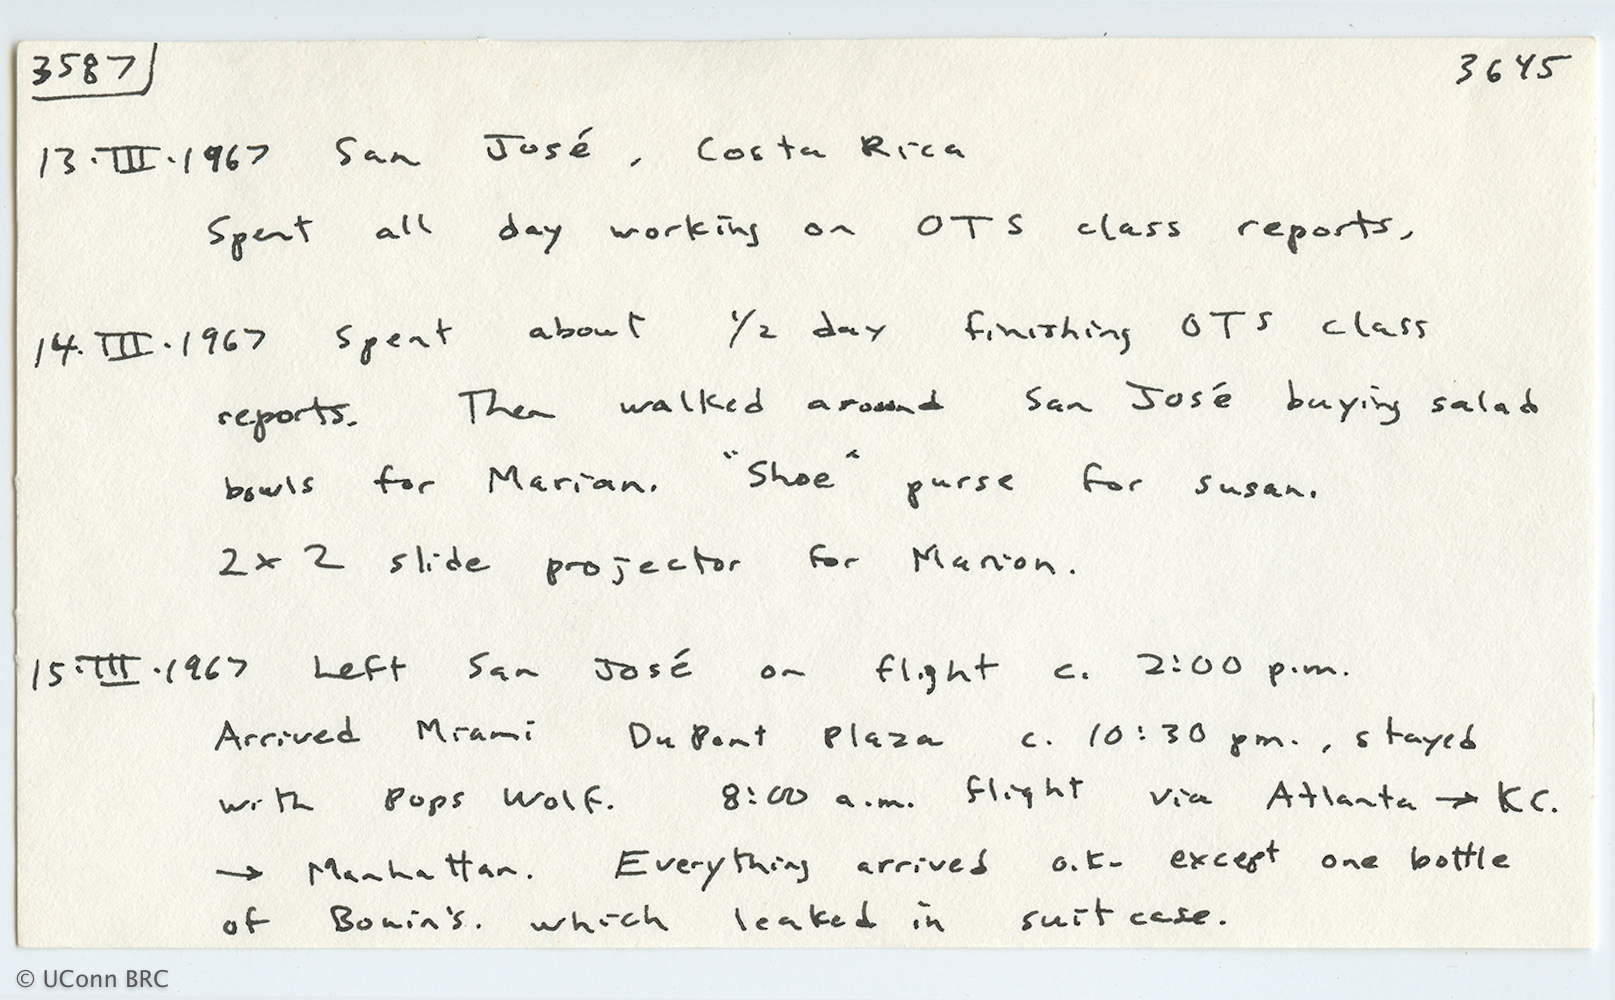 3587 3645
13.III.1967 San José, Costa Rica
Spent all day working on OTS class reports.
14.III.1967 Spent about 1/2 day finishing OTS class
reports. Then walked around San José buying salad
bowls for Marian. "Shoe" purse for susan.
2x2 slide projector for Marion.
15.III.1967 Left San José on flight c. 2:00 p.m.
Arrived Miami DuPont Plaza c. 10:30 pm., stayed
with Pops Wolf. 8:00 a.m. flight via Atlanta → KC.
→ Manhattan. Everything arrived o.k. except one bottle
of Bouin's. which leaked in suitcase.
© UConn BRC